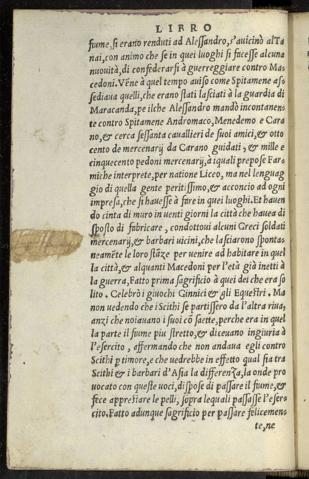 LIBRO
fiume, si erano renduti ad Alessandro, s'auicinò al Ta
nai, con animo che se in quei luoghi si facesse alcuna
nuouità, di confederarsi à guerreggiare contro Ma-
cedoni. Vēne à quel tempo auiso come Spitamene as-
sediaua quelli, che erano stati lasciati à la guardia di
Maracanda, pe ilche Alessandro mandò incontanen-
te contro Spitamene Andromaco, Menedemo e Cara
no, & cerca sessanta cauallieri de suoi amici, & otto
cento de mercenarij da Carano guidati, & mille e
cinquecento pedoni mercenarij, à iquali prepose Far-
miche interprete, per natione Liceo, ma nel lenguag
gio di quella gente peritissimo, & acconcio ad ogni
impresa, che si hauesse à fare in quei luoghi. Et hauen
do cinta di muro in uenti giorni la città che hauea di
sposto di fabricare, condottoui alcuni Greci soldati
mercenarij, & barbari uicini, che lasciarono sponta-
neamēte le loro stāze per uenire ad habitare in quel
la città, & alquanti Macedoni per l'età già inetti à
la guerra, Fatto prima sagrificio à quei dei che era so
lito. Celebrò i giuochi Ginnici & gli Equestri. Ma
non uedendo che i Scithi se partissero da l'altra riua,
anzi che noiauano i suoi cō saette, perche era in quel
la parte il fiume piu stretto, & diceuano ingiuria à
l'esercito, affermando che non andaua egli contro
Scithi p timore, e che uedrebbe in effetto qual sia tra
Scithi & i barbari d'Asia la differenza, la onde pro
uocato con queste uoci, dispose di passare il fiume, &
fece apprestare le pelli, sopra lequali passasse l'eser-
cito. Fatto adunque sagrificio per passare felicemen-
te, ne